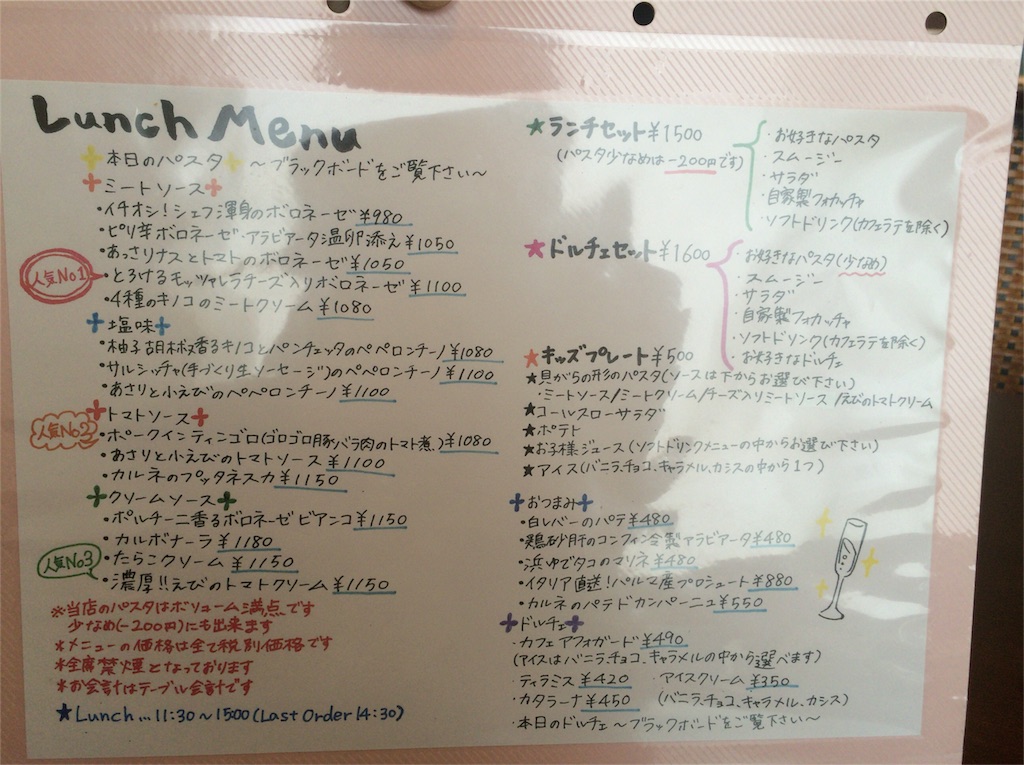 Lunch Menu
本日のパスタ ～ブラックボードをご覧下さい～
ミートソース
・イチオシ!シェフ渾身のボロネーゼ ¥980
・ピリ辛ボロネーゼ・アラビアータ温卵添え ¥1050
・あっさりナスとトマトのボロネーゼ ¥1050
人気No1
・とろけるモッツァレラチーズ入りボロネーゼ ¥1100
・4種のキノコのミートクリーム ¥1080
塩味
・柚子胡椒香るキノコとパンチェッタのペペロンチーノ ¥1080
・サルシッチャ(手づくり生ソーセージ)のペペロンチーノ ¥1100
・あさりと小えびのペペロンチーノ ¥1100
トマトソース
人気No2
・ポークインティンゴロ(ゴロゴロ豚バラ肉のトマト煮) ¥1080
・あさりと小えびのトマトソース ¥1100
・カルネのプッタネスカ ¥1150
クリームソース
・ポルチーニ香るボロネーゼ ビアンコ ¥1150
・カルボナーラ ¥1180
人気No3
・たらこクリーム ¥1150
・濃厚!!えびのトマトクリーム ¥1150
※当店のパスタはボリューム満点です
少なめ(-200円)にも出来ます
*メニューの価格は全て税別価格です
*全席禁煙となっております
*お会計はテーブル会計です
★Lunch... 11:30～15:00 (Last Order 14:30)
★ランチセット ¥1500
(パスタ少なめは-200円です)
・お好きなパスタ
・スムージー
・サラダ
・自家製フォカッチャ
・ソフトドリンク(カフェラテを除く)
★ドルチェセット ¥1600
・お好きなパスタ(少なめ)
・スムージー
・サラダ
・自家製フォカッチャ
・ソフトドリンク(カフェラテを除く)
・お好きなドルチェ
★キッズプレート ¥500
★貝がらの形のパスタ(ソースは下からお選び下さい)
・ミートソース/ミートクリーム/チーズ入りミートソース/えびのトマトクリーム
★コールスローサラダ
★ポテト
★お子様ジュース(ソフトドリンクメニューの中からお選び下さい)
★アイス(バニラ、チョコ、キャラメル、カシスの中から1つ)
おつまみ
・白レバーのパテ ¥480
・鶏砂肝のコンフィ冷製アラビアータ ¥480
・浜ゆでタコのマリネ ¥480
・イタリア直送!パルマ産プロシュート ¥880
・カルネのパテドカンパーニュ ¥550
ドルチェ
・カフェアフォガード ¥490
(アイスはバニラ、チョコ、キャラメルの中から選べます)
・ティラミス ¥420 ・アイスクリーム ¥350
・カタラーナ ¥450 (バニラ、チョコ、キャラメル、カシス)
・本日のドルチェ ～ブラックボードをご覧下さい～